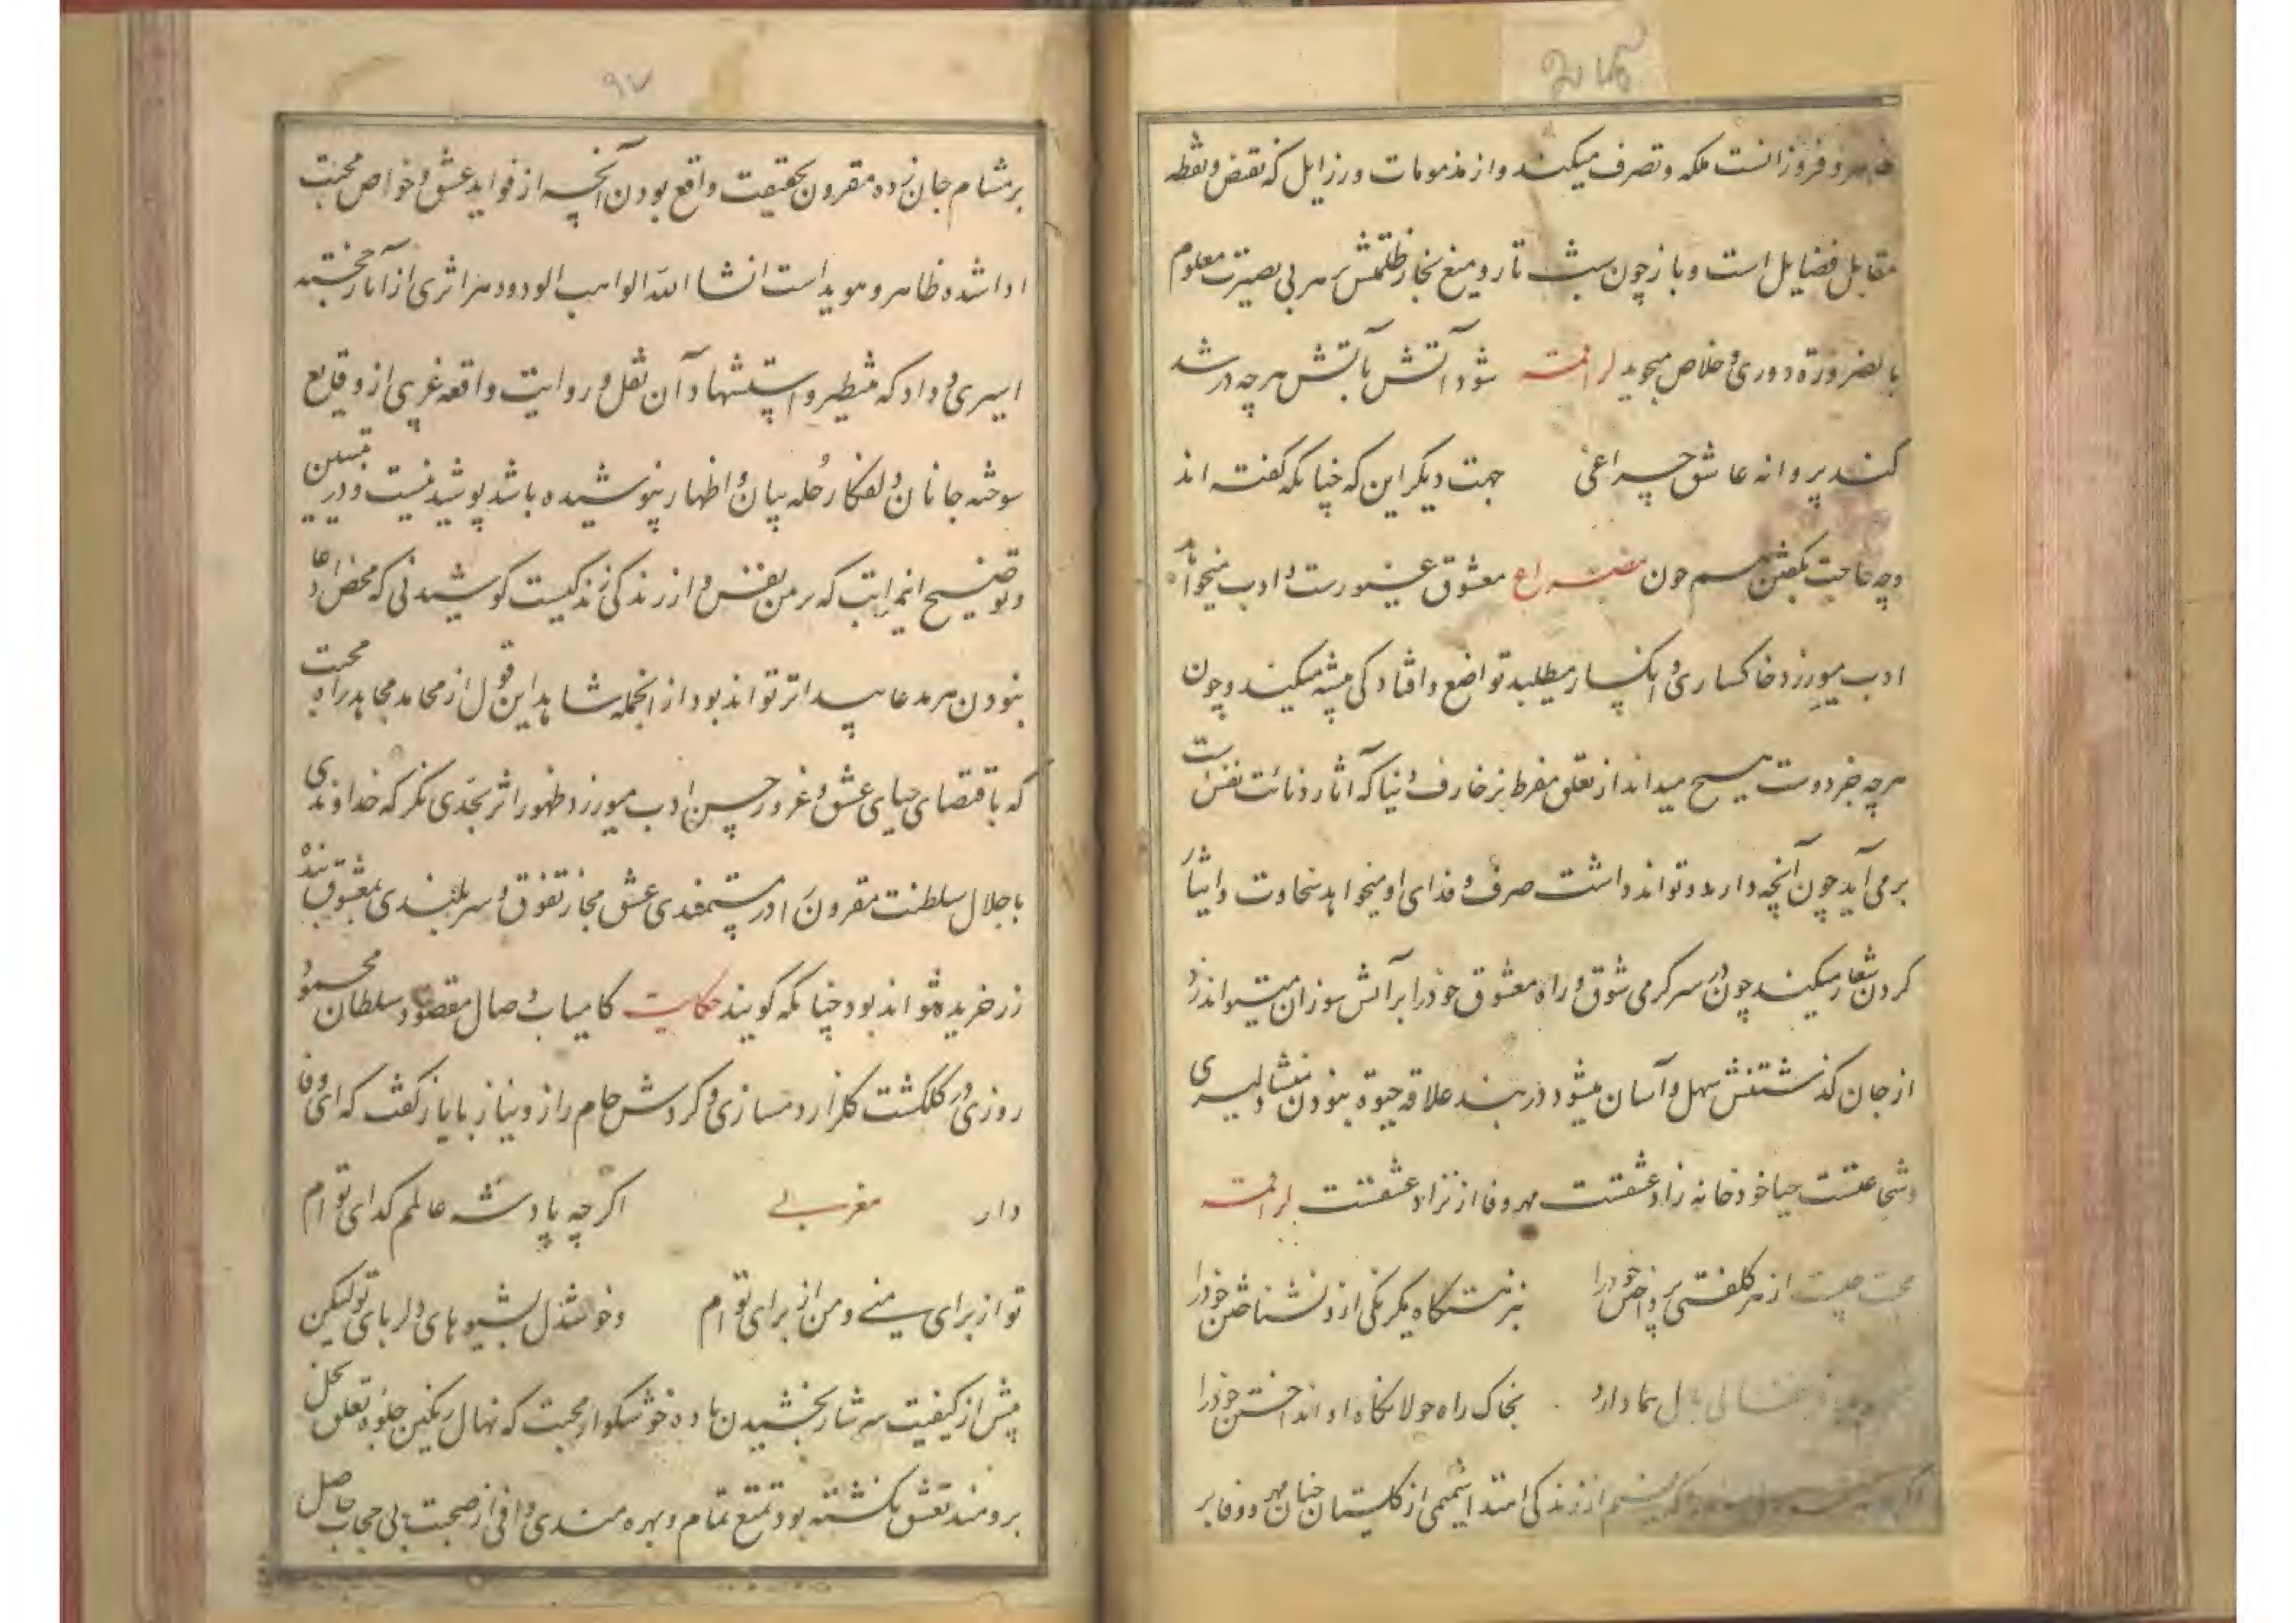 و فروزانست ملکه و تصرف میکند و از مذمومات و رزایل که نقض و نقطه
مقابل فضایل است و باز چون شب تار و میغ بخار ظلمتش بر هر بی بصیرت معلوم
بالضرورة دوری و خلاص میجوید لراقمه شود آتش بآتش هر چه در شد
کند پروانه عاشق چراغی جهت دیگر این که چنانکه گفته اند
و چه حاجت بگفتن هم چون مصراع معشوق غیورست و ادب میخواهد
ادب میورزد خاکساری و انکسار میطلبد تواضع و افتادگی پیشه میکند و چون
هر چه جز دوست هیچ میداند از تعلق مفرط بزخارف دنیا که آثار دنائت نفس است
برمی آید چون آنچه دارد و تواند داشت صرف و فدای او میخواهد سخاوت و ایثار
کردن شعار میکند چون در سرگرمی شوق و راه معشوق خود را بر آتش سوزان میتواند زد
از جان گذشتنش سهل و آسان میشود در بند علاقه حیوة نبودن منشا دلیری
و شجاعتست حیا خود خانه زاد عشقست مهر و وفا از نژاد عشقست لراقمه
محبت چیست از هر کلفتی پرداختن خود را بنزهتگاه یکرنگی ازو نشناختن خود را
بال هما دارد بخاک راه جولانگاه او انداختن خود را
از زندگی امتد شمیمی از گلستان چنان مهر و وفا بر
۹۷
بر مشام جان زده مقرون بحقیقت واقع بودن آنچه از فواید عشق و خواص محبت
ادا شده ظاهر و هویداست انشا الله الواهب الودود هر اثری از آثار خجسته
اسیری و داد که منظر و استشهاد آن نقل و روایت واقعه غریبی از وقایع
سوخته جانان دلفکار حله بیان و اظهار نپوشیده باشد پوشیده نیست و در تبیین
و توضیح این مراتب که هر من نفس و از زندگی زندگیست کوشیدنی که محض ادعا
نبودن هر مدعا پیدا تر تواند بود از انجمله شاهد این قول از محامد مجاهد راه محبت
که باقتضای حیای عشق و غرور حسن ادب میورزد ظهور اثر بحدی نگر که خداوندی
با جلال سلطنت مقرون را در مستمندی عشق مجاز تفوق و سربلندی بمعشوق بنده
زر خریده تواند بود چنانکه گویند حکایت کامیاب وصال مقصود سلطان محمود
روزی در گلگشت گلزار دمسازی و گردش جام راز و نیاز بایاز گفت که ای وفا
دار مغربی اگر چه پادشه عالمم گدای تو ام
تو از برای منی و من از برای تو ام و خوشدل بشیوهای دلربای تو لیکن
پیش از کیفیت سرشار بخشیدن باده خوشگوار محبت که نهال رنگین جلوه تعلق نخل
برومند تعشق نگشته بود تمتع تمام و بهره مندی وافی از صحبت بی حجاب حاصل